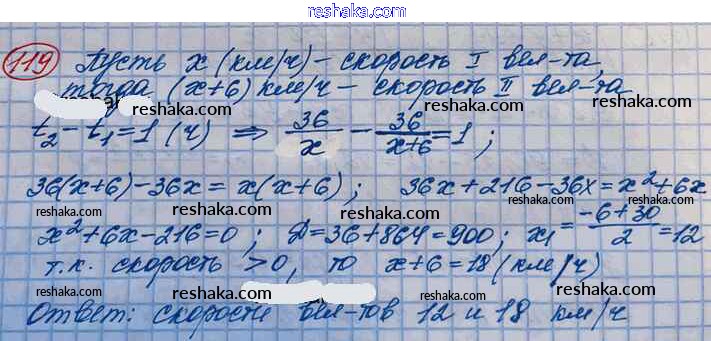 reshaka.com
119 Пусть х (км/ч) – скорость I вел-та,
reshaka.com reshaka.com reshaka.com
тогда (х+6) км/ч – скорость II вел-та
reshaka.com reshaka.com
t₂ – t₁ = 1 (ч) ⇒ 36/x – 36/x+6 = 1 ;
reshaka.com reshaka.com
36(x+6) – 36x = x(x+6) ; 36x + 216 – 36x = x² + 6x
reshaka.com reshaka.com reshaka.com
x² + 6x – 216 = 0 ; D = 36 + 864 = 900 ; x₁ = –6+30/2 = 12
reshaka.com reshaka.com reshaka.com
т.к. скорость > 0, то х+6 = 18 (км/ч)
reshaka.com reshaka.com
Ответ: скорости вел-тов 12 и 18 км/ч
reshaka.com reshaka.com reshaka.com